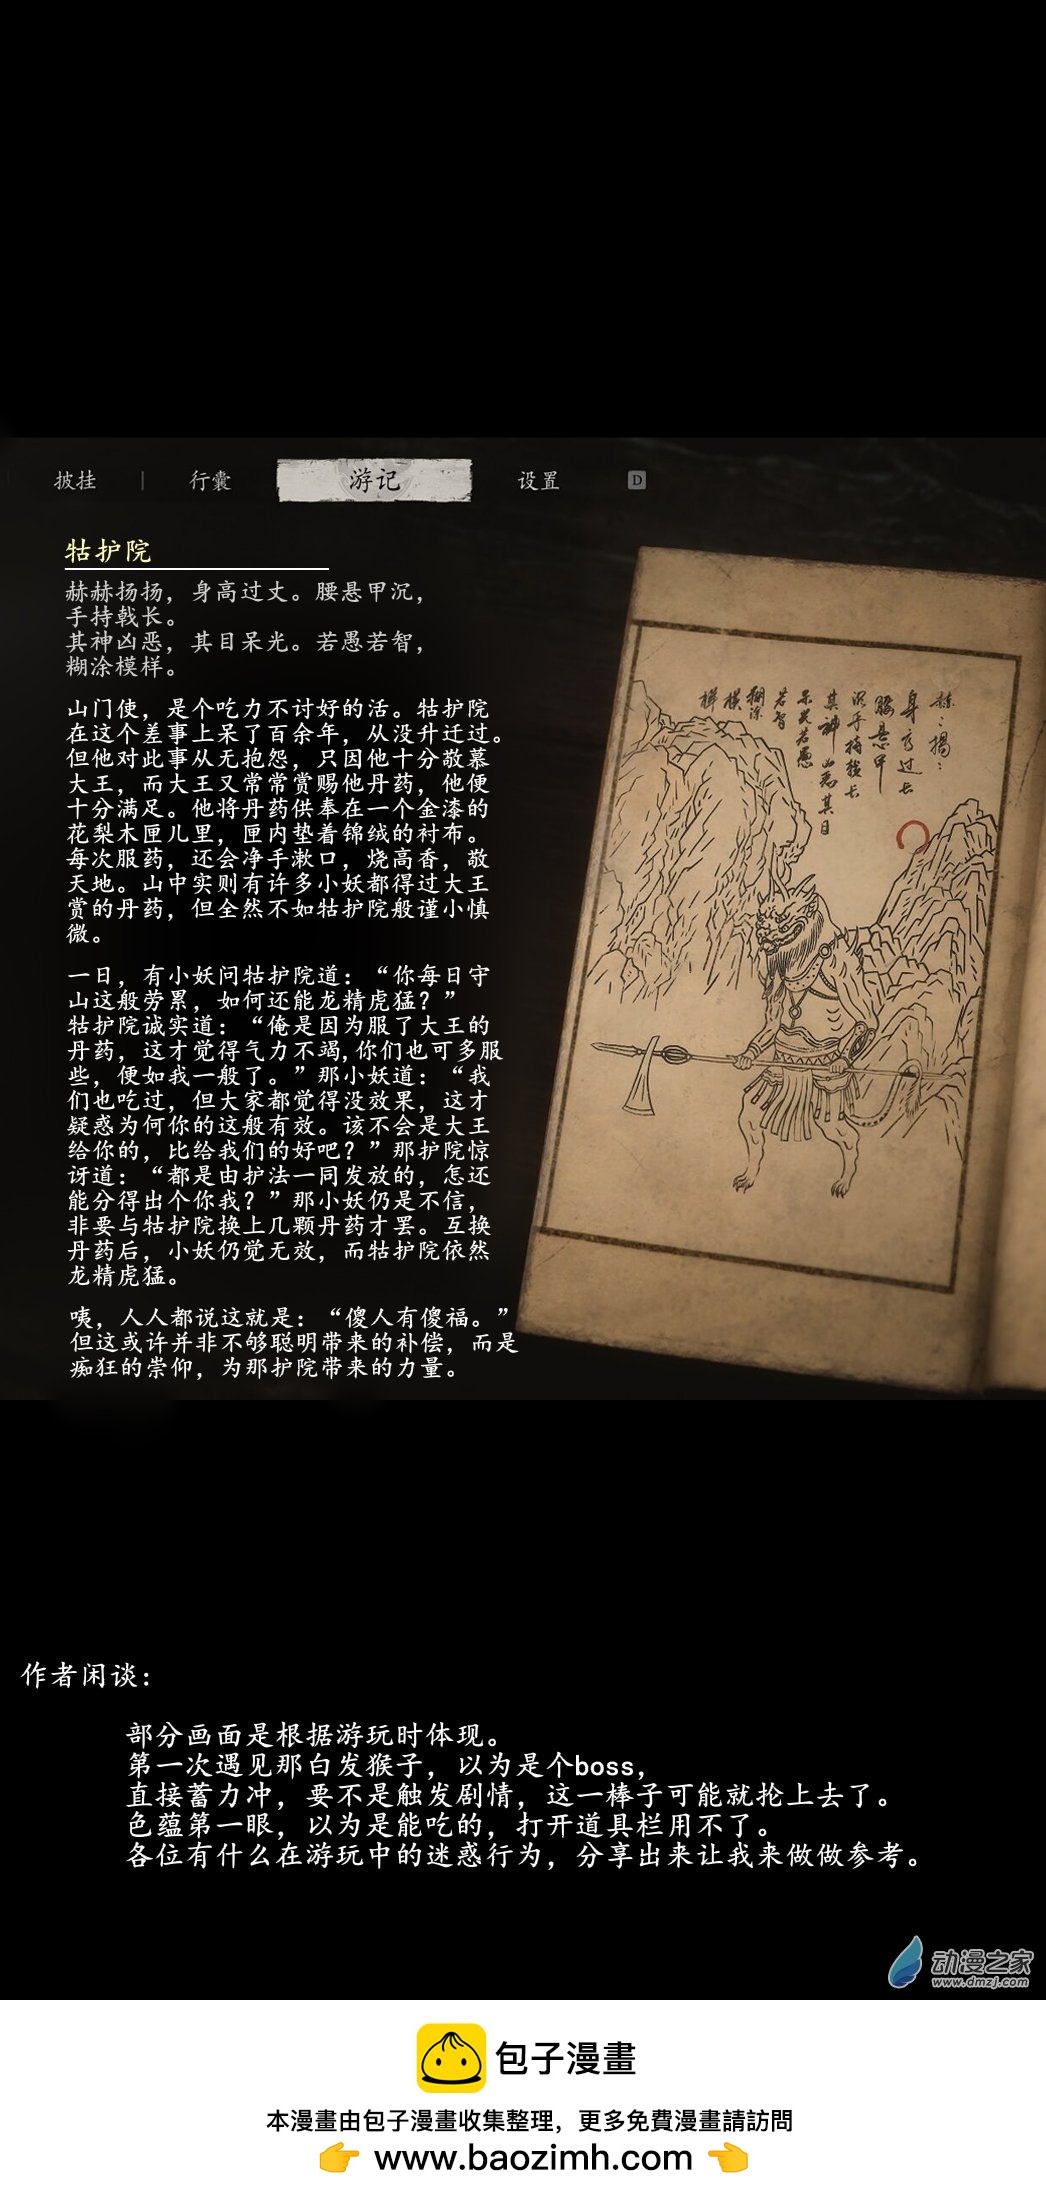 披挂 | 行囊 游记 设置 D
牯护院
赫赫扬扬，身高过丈。腰悬甲沉，
手持戟长。
其神凶恶，其目呆光。若愚若智，
糊涂模样。
山门使，是个吃力不讨好的活。牯护院
在这个差事上呆了百余年，从没升迁过。
但他对此事从无抱怨，只因他十分敬慕
大王，而大王又常常赏赐他丹药，他便
十分满足。他将丹药供奉在一个金漆的
花梨木匣儿里，匣内垫着锦绒的衬布。
每次服药，还会净手漱口，烧高香，敬
天地。山中实则有许多小妖都得过大王
赏的丹药，但全然不如牯护院般谨小慎
微。
一日，有小妖问牯护院道：“你每日守
山这般劳累，如何还能龙精虎猛？”
牯护院诚实道：“俺是因为服了大王的
丹药，这才觉得气力不竭,你们也可多服
些，便如我一般了。”那小妖道：“我
们也吃过，但大家都觉得没效果，这才
疑惑为何你的这般有效。该不会是大王
给你的，比给我们的好吧？”那护院惊
讶道：“都是由护法一同发放的，怎还
能分得出个你我？”那小妖仍是不信，
非要与牯护院换上几颗丹药才罢。互换
丹药后，小妖仍觉无效，而牯护院依然
龙精虎猛。
咦，人人都说这就是：“傻人有傻福。”
但这或许并非不够聪明带来的补偿，而是
痴狂的崇仰，为那护院带来的力量。
身高过
腰悬甲
沉手持戟长
其神凶恶其目
呆光若愚
若智
糊涂
模
样
作者闲谈：
部分画面是根据游玩时体现。
第一次遇见那白发猴子，以为是个boss，
直接蓄力冲，要不是触发剧情，这一棒子可能就抡上去了。
色蕴第一眼，以为是能吃的，打开道具栏用不了。
各位有什么在游玩中的迷惑行为，分享出来让我来做做参考。
动漫之家
www.dmzj.com
包子漫畫
本漫畫由包子漫畫收集整理，更多免費漫畫請訪問
👉 www.baozimh.com 👈